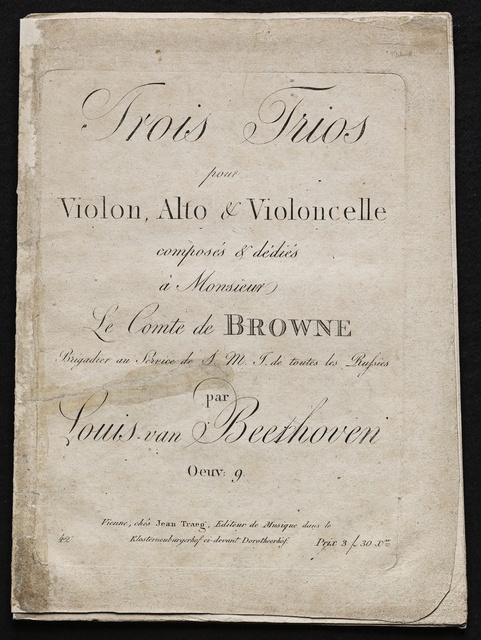 Trois Trios
pour
Violon, Alto & Violoncelle
composés & dédiés
à Monsieur
Le Comte de BROWNE
Brigadier au Service de S. M. I. de toutes les Russies
par
Louis van Beethoven
Oeuv: 9.
Vienne, chés Jean Traeg, Editeur de Musique dans le
Klosterneuburgerhof ci-devant Dorotheerhof.
42 Prix 3 f. 30 Xr.